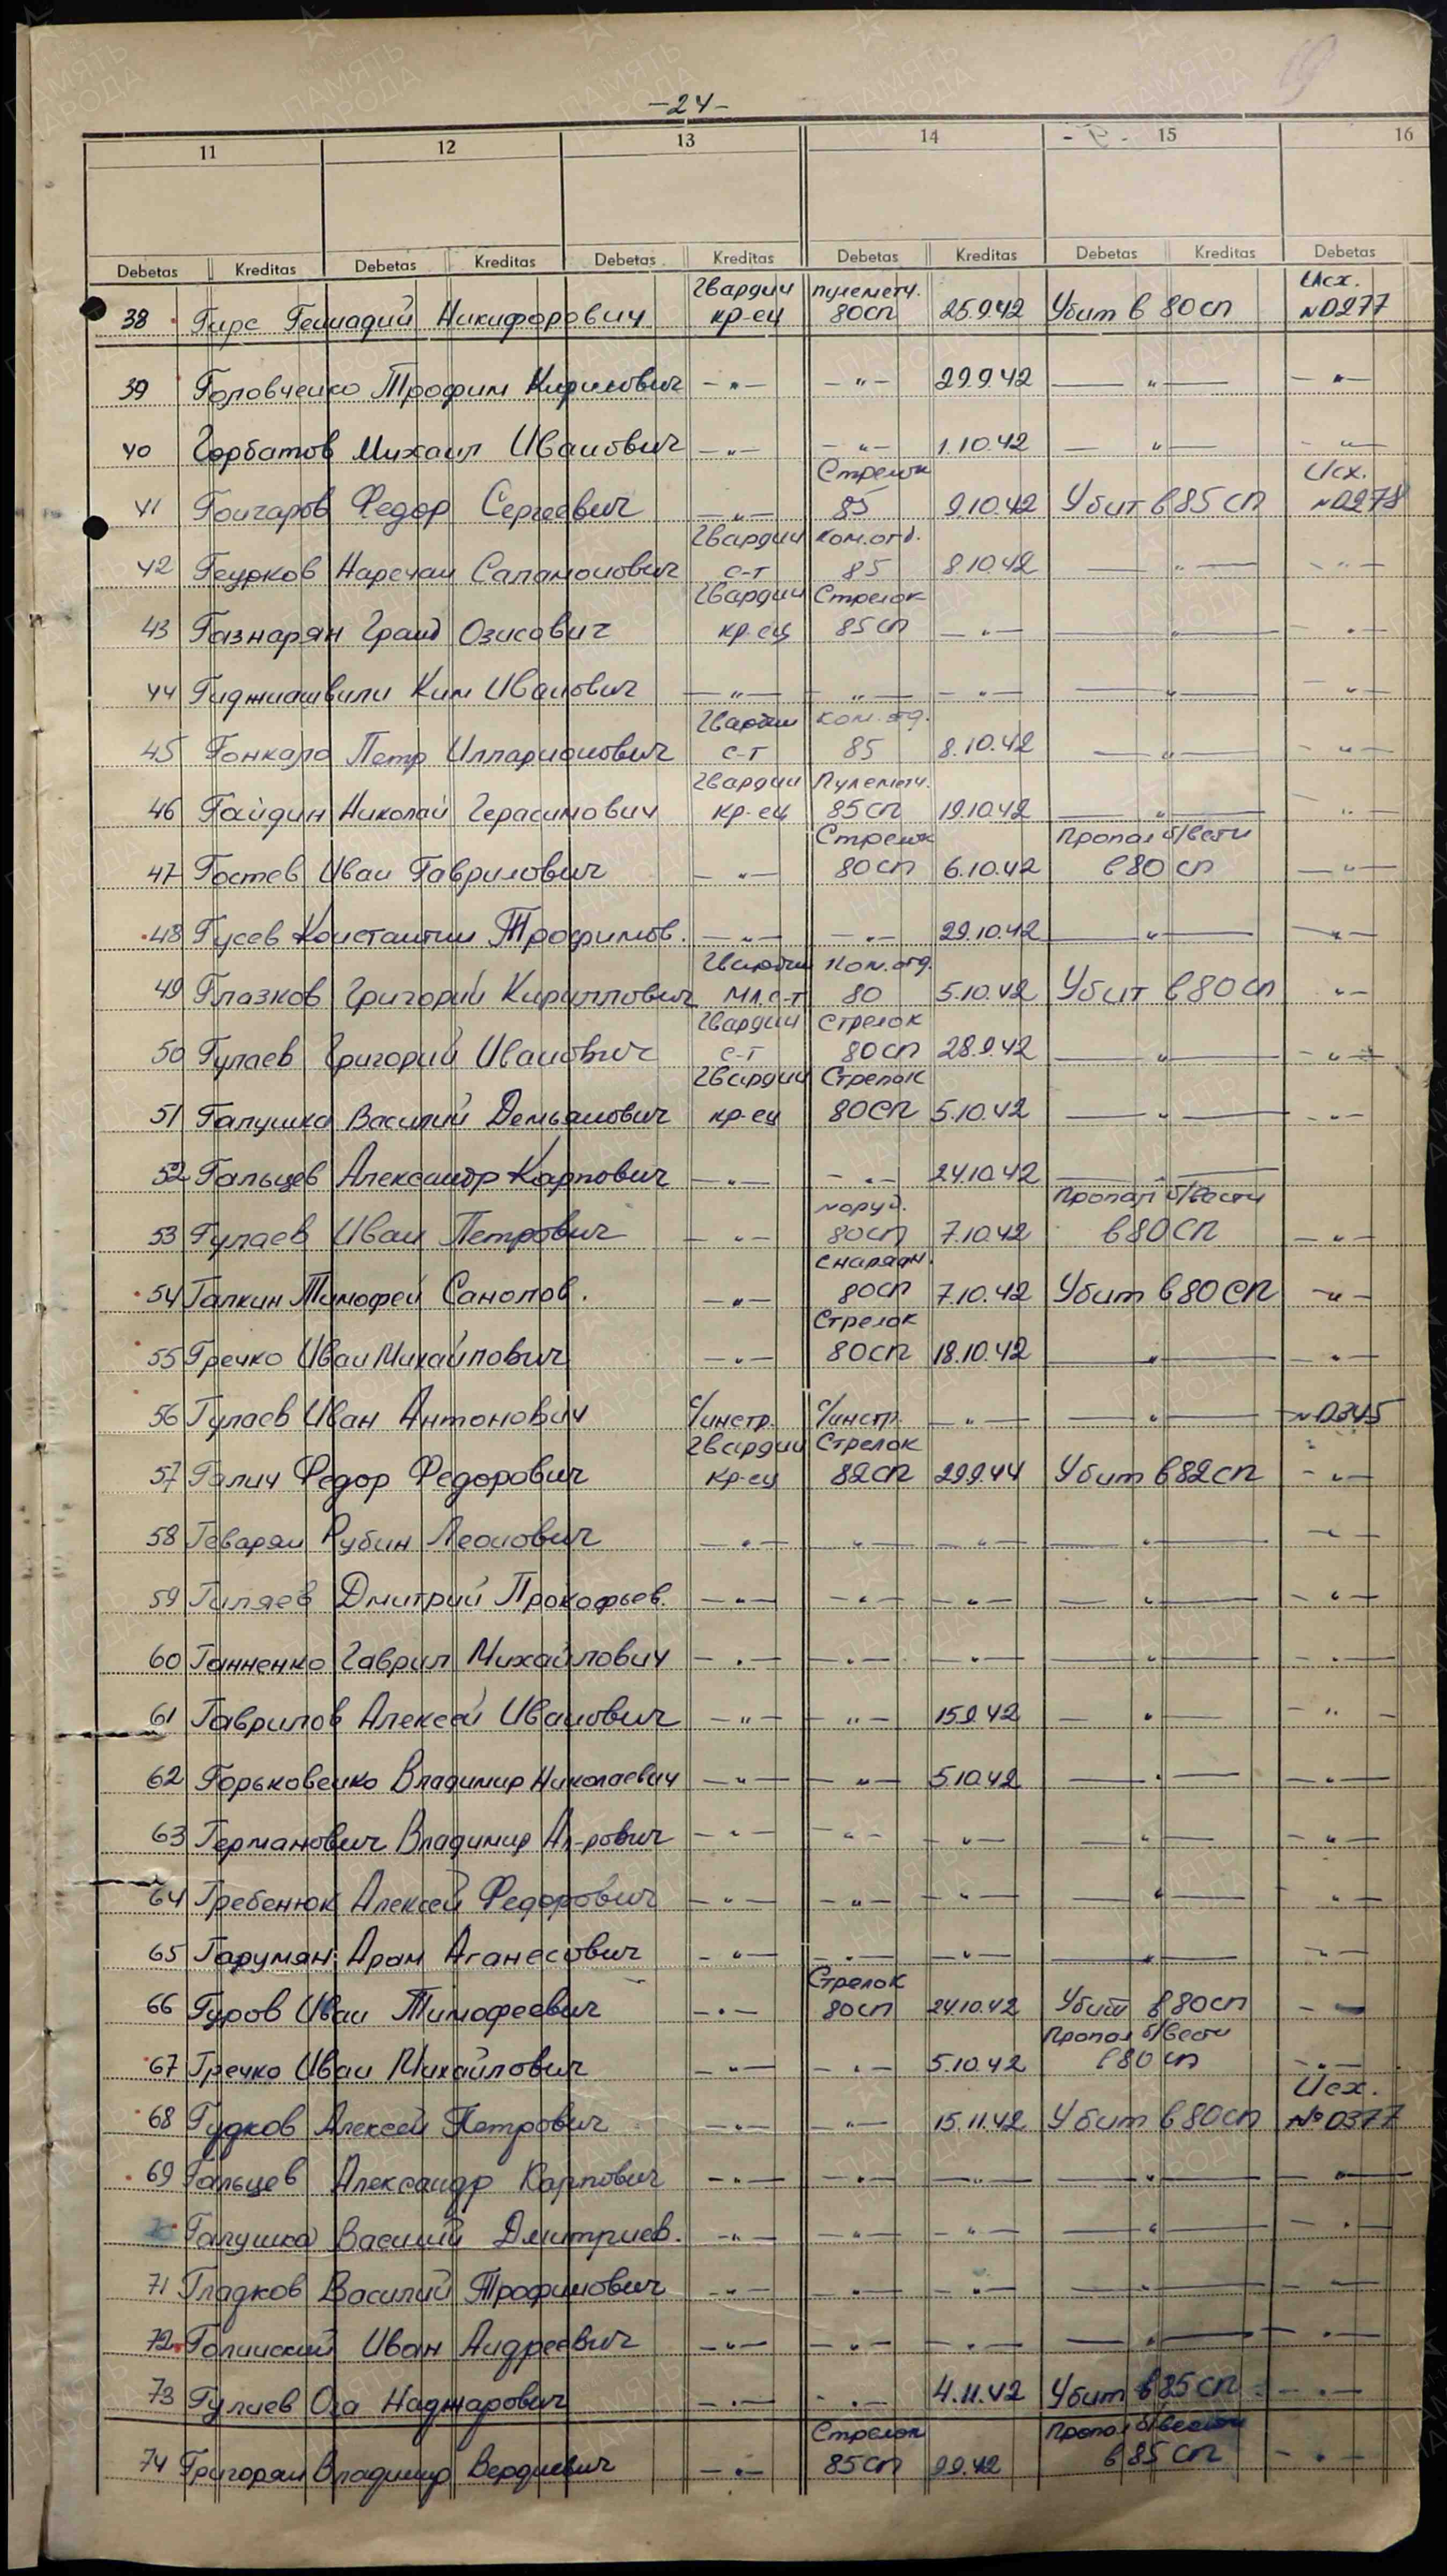 -24-
11 12 13 14 15 16
Debetas Kreditas Debetas Kreditas Debetas Kreditas Debetas Kreditas Debetas Kreditas Debetas
Гвардии пулеметч. Исх.
38 Гирс Геннадий Никифорович кр-ец 80сп 25.9.42 Убит в 80сп №0277
39 Головченко Трофим Кирилович —„— —„— 29.9.42 —„— —„—
40 Горбатов Михаил Иванович —„— —„— 1.10.42 —„— —„—
Стрелок Исх.
41 Гончаров Федор Сергеевич —„— 85 9.10.42 Убит в 85 сп №0278
Гвардии ком.отд.
42 Геурков Наречан Саламонович с-т 85 8.10.42 —„— —„—
Гвардии Стрелок
43 Газнарян Гранд Озисович кр.ец 85сп —„— —„— —„—
44 Гиджиашвили Ким Иванович —„— —„— —„— —„— —„—
Гвардии ком.отд.
45 Гонкало Петр Илларионович с-т 85 8.10.42 —„— —„—
Гвардии Пулеметч.
46 Гайдин Николай Герасимович кр-ец 85сп 19.10.42 —„— —„—
Стрелок Пропал б/вести
47 Гостев Иван Гаврилович —„— 80сп 6.10.42 в 80 сп —„—
48 Гусев Константин Трофимов. —„— —„— 29.10.42 —„— —„—
Гвардии Ком.отд.
49 Глазков Григорий Кириллович мл.с-т 80 5.10.42 Убит в 80сп —„—
Гвардии Стрелок
50 Гулаев Григорий Иванович с-т 80сп 28.9.42 —„— —„—
Гвардии Стрелок
51 Галушка Василий Демьянович кр-ец 80сп 5.10.42 —„— —„—
52 Гальцев Александр Карпович —„— —„— 24.10.42 —„—
Пропал б/вести
53 Гулаев Иван Петрович —„— 80сп 7.10.42 в 80СП —„—
снарядн.
54 Галкин Тимофей —„— 80сп 7.10.42 Убит в 80СП —„—
Стрелок
55 Гречко Иван Михайлович —„— 80сп 18.10.42 —„— —„—
56 Гулаев Иван Антонович с/инстр. с/инстр. —„— —„— №0345
Гвардии Стрелок
57 Галич Федор Федорович кр-ец 82сп 29.9.44 Убит в 82сп —„—
58 Геварян Рубин Леонович —„— —„— —„— —„— —„—
59 Гиляев Дмитрий Прокофьев. —„— —„— —„— —„— —„—
60 Ганненко Гаврил Михайлович —„— —„— —„— —„— —„—
61 Гаврилов Алексей Иванович —„— —„— 15.9.42 —„— —„—
62 Горьковенко Владимир Николаевич —„— —„— 5.10.42 —„— —„—
63 Германович Владимир Ал-рович —„— —„— —„— —„— —„—
64 Гребенюк Алексей Федорович —„— —„— —„— —„— —„—
65 Гарумян Арам Аганесович —„— —„— —„— —„— —„—
Стрелок
66 Гуров Иван Тимофеевич —„— 80сп 24.10.42 Убит в 80сп —„—
Пропал б/вести
67 Гречко Иван Михайлович —„— —„— 5.10.42 в 80 сп —„—
Исх.
68 Гудков Алексей Петрович —„— —„— 15.11.42 Убит в 80сп №0377
69 Гальцев Александр Карпович —„— —„— —„— —„— —„—
Галушка Василий Дмитриев. —„— —„— —„— —„— —„—
71 Гладков Василий Трофимович —„— —„— —„— —„— —„—
72 Голинский Иван Андреевич —„— —„— —„— —„— —„—
73 Гулиев Ога Наджарович —„— —„— 4.11.42 Убит в 85СП —„—
Стрелок Пропал б/вести
74 Григорян Владимир Вердиевич —„— 85сп 9.9.42 в 85 СП —„—